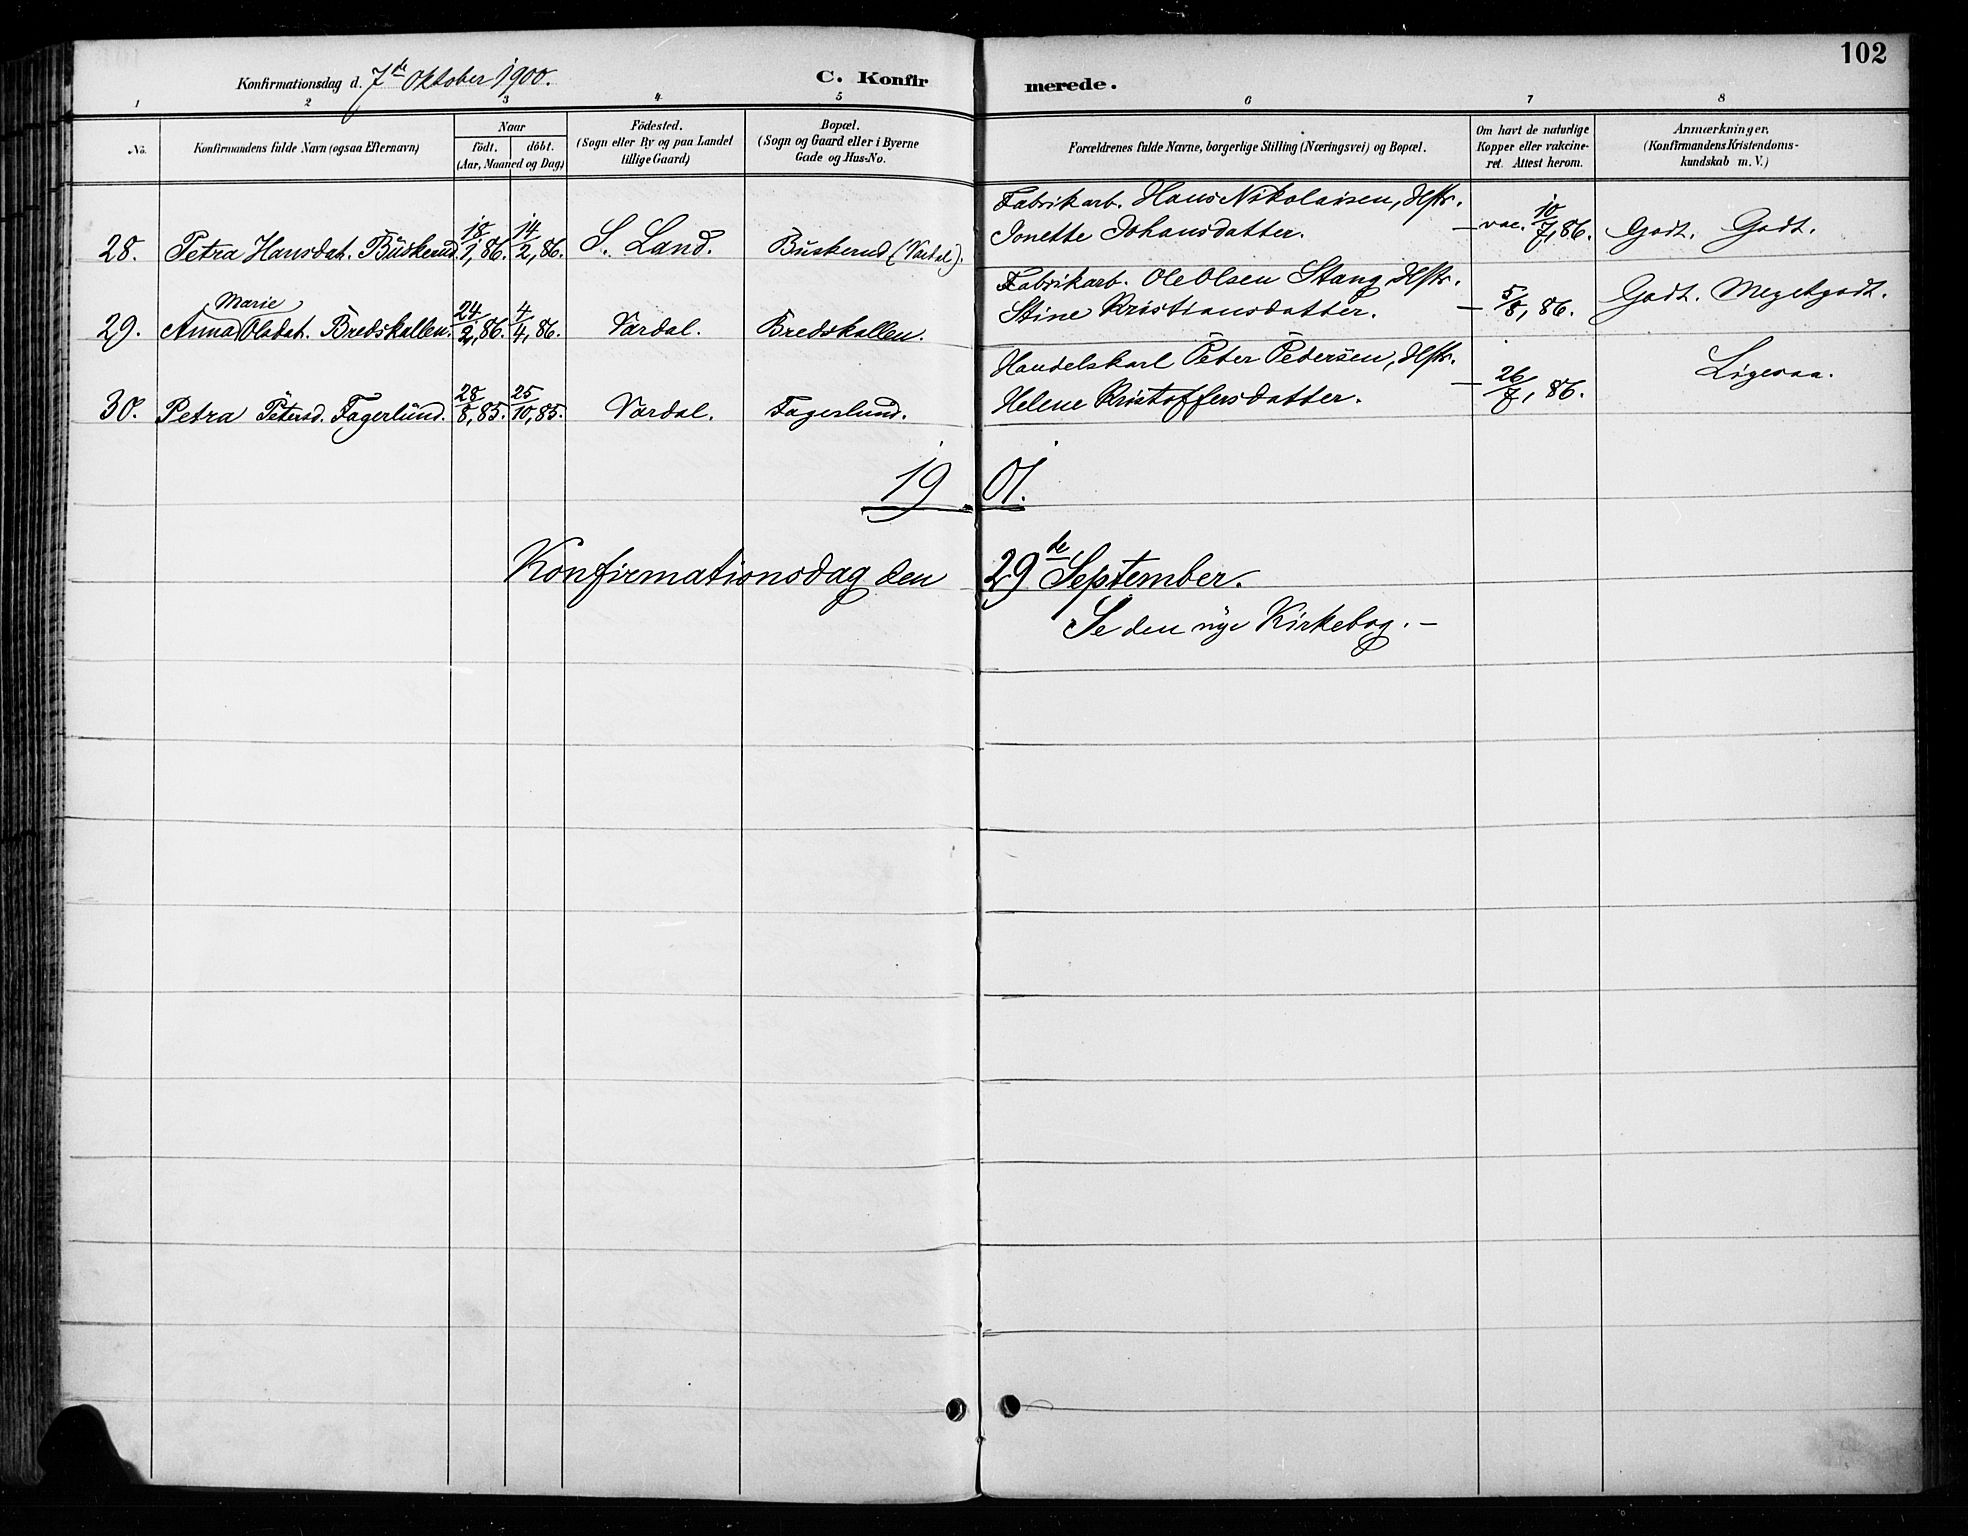 102
Konfirmationsdag d. 7de Oktober 1900. C. Konfirmerede.
1 2 3 4 5 6 7 8
No.
Konfirmandens fulde Navn (ogsaa Efternavn)
Naar
födt. döbt.
(Aar, Maaned og Dag)
Födested.
(Sogn eller By og paa Landet
tillige Gaard)
Bopæl.
(Sogn og Gaard eller i Byerne
Gade og Hus-No.
Forældrenes fulde Navne, borgerlige Stilling (Næringsvei) og Bopæl.
Om havt de naturlige
Kopper eller vakcine-
ret. Attest herom.
Anmærkninger.
(Konfirmandens Kristendoms-
kundskab m. V.)
Fabrikarb. Hans Nikolaisen, Hstr.
28. Petra Hansdat. Buskerud. 18/1, 86. 14/2, 86. S. Land. Buskerud (Vardal). Jonette Johansdatter. – vac. 10/7, 86. Godt. Godt.
Fabrikarb. Ole Olsen Stang, Hstr.
29. Anna Marie Olsdat. Bredskallen. 24/2, 86. 4/4, 86. Vardal. Bredskallen. Stine Kristiansdatter. – 5/8, 86. Godt. Megetgodt.
Handelskarl Peter Pedersen, Hstr.
30. Petra Petersd. Fagerlund. 28/8, 85. 25/10, 85. Vardal. Fagerlund. Helene Kristoffersdatter. – 26/7, 86. Ligesaa.
1901.
Konfirmationsdag den 29de September.
Se den nye Kirkebog. –